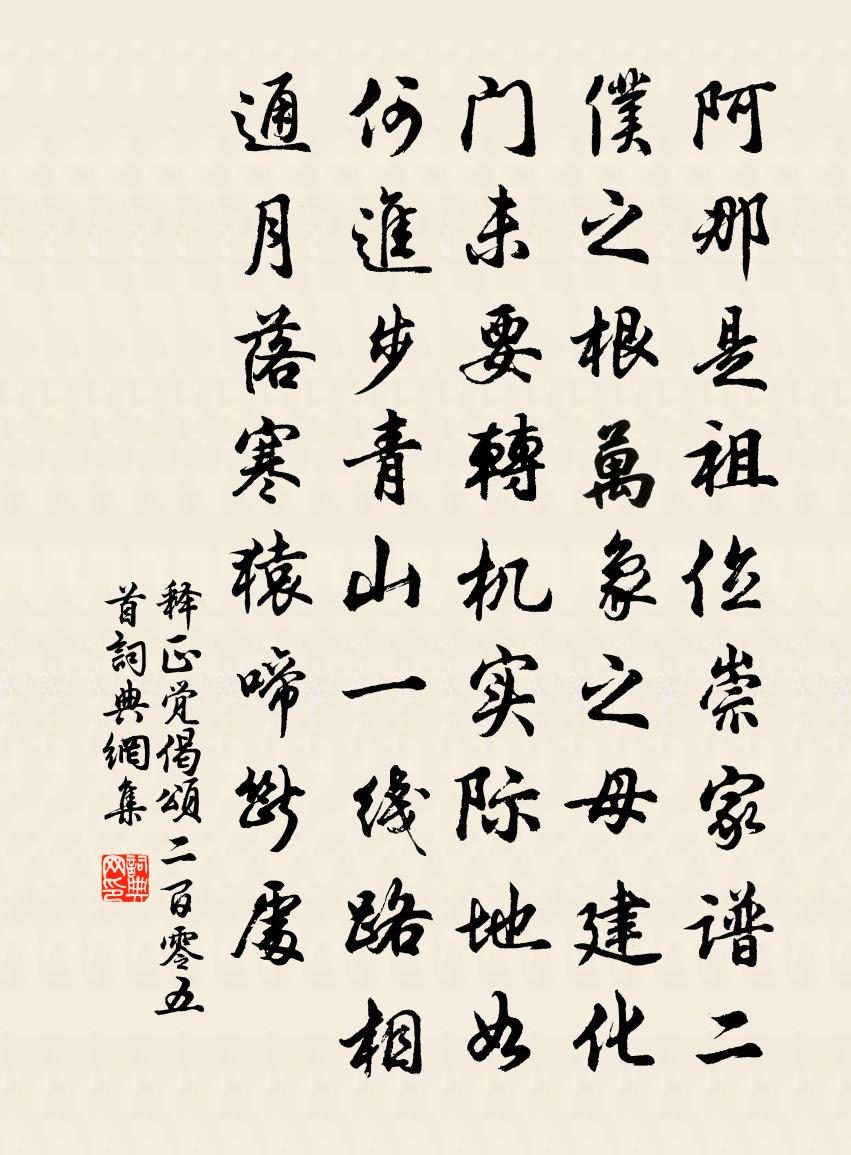 阿那是祖位崇家谱二
僕之根萬象之母建化
门未要轉机实际地如
何進步青山一线路相
通月落寒猿啼斷處
释正觉偈頌二百零五
首詞典網集
詞典
网印